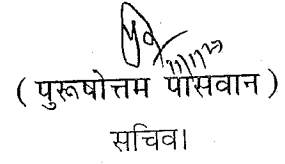 ( पुरूषोत्तम पासवान )
सचिव।